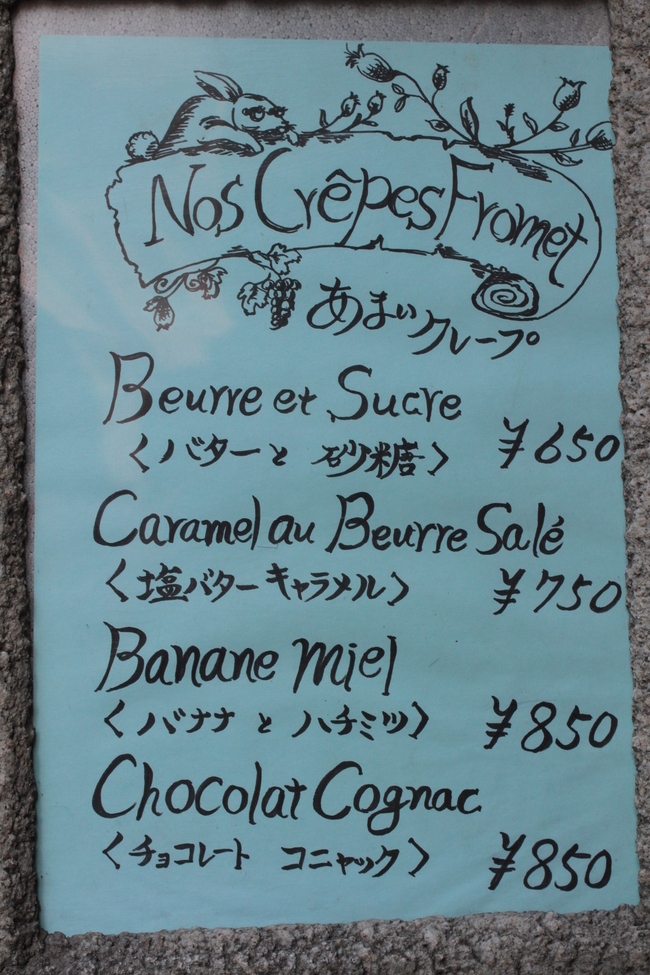 Nos Crêpes Fromet
あまいクレープ
Beurre et Sucre
〈バターと 砂糖〉 ¥650
Caramel au Beurre Salé
〈塩バターキャラメル〉 ¥750
Banane Miel
〈バナナ と ハチミツ〉 ¥850
Chocolat Cognac
〈チョコレート コニャック〉 ¥850